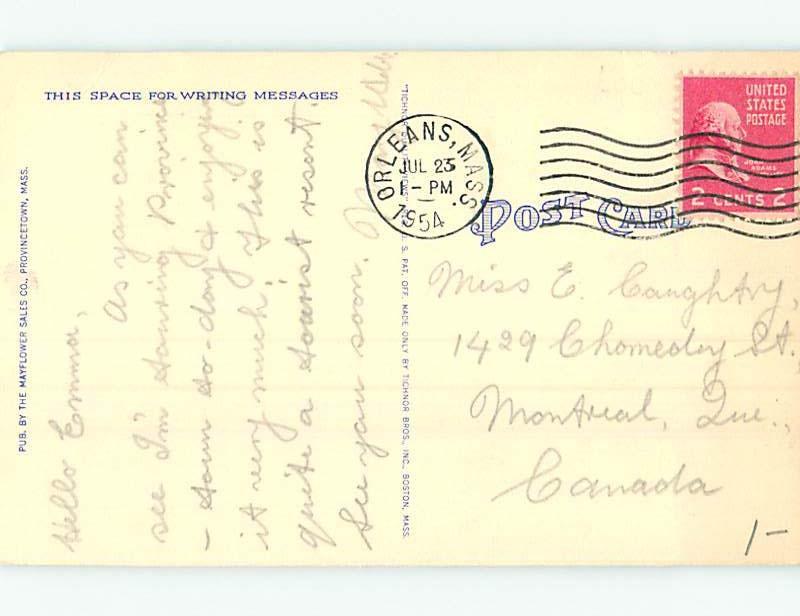 THIS SPACE FOR WRITING MESSAGES
Hello Emma,
As you can
see I'm touring Province
- town to-day & enjoying
it very much. This is
quite a tourist resort.
See you soon.
PUB. BY THE MAYFLOWER SALES CO., PROVINCETOWN, MASS.
"TICHNOR QUALITY VIEWS" REG. U. S. PAT. OFF. MADE ONLY BY TICHNOR BROS., INC., BOSTON, MASS.
ORLEANS, MASS.
JUL 23
- PM
1954
UNITED
STATES
POSTAGE
JOHN
ADAMS
2 CENTS 2
POST CARD
Miss E. Caughtry,
1429 Chomedey St.
Montreal, Que.,
Canada
1-